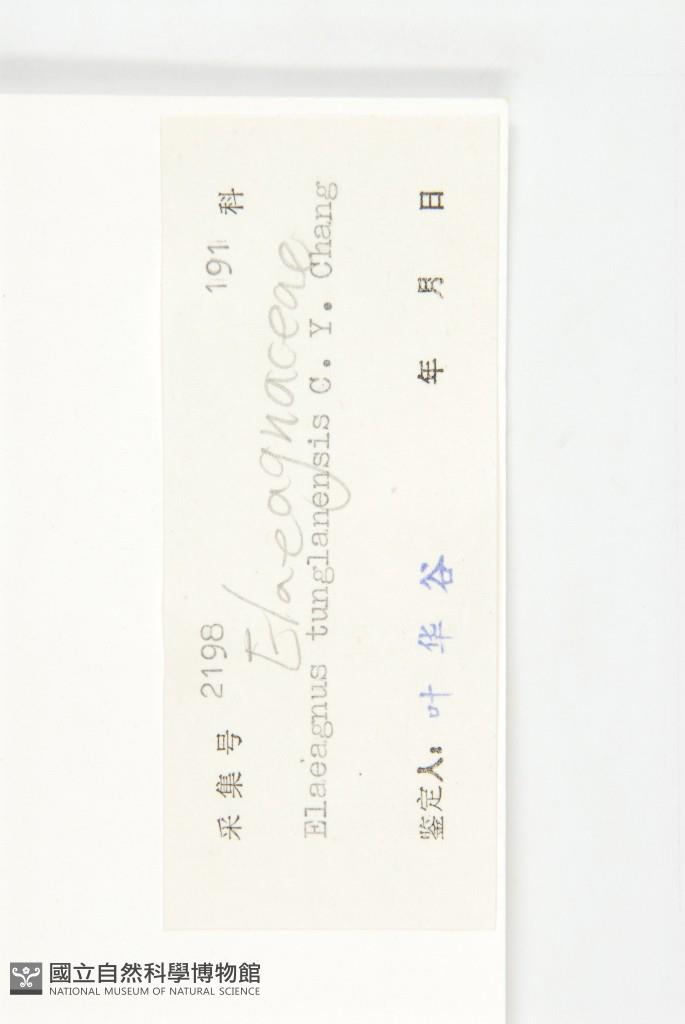 采集号 2198 191 科
Elaeagnaceae
Elaeagnus tunglanensis C. Y. Chang
鉴定人: 叶华谷 年 月 日
國立自然科學博物館
NATIONAL MUSEUM OF NATURAL SCIENCE